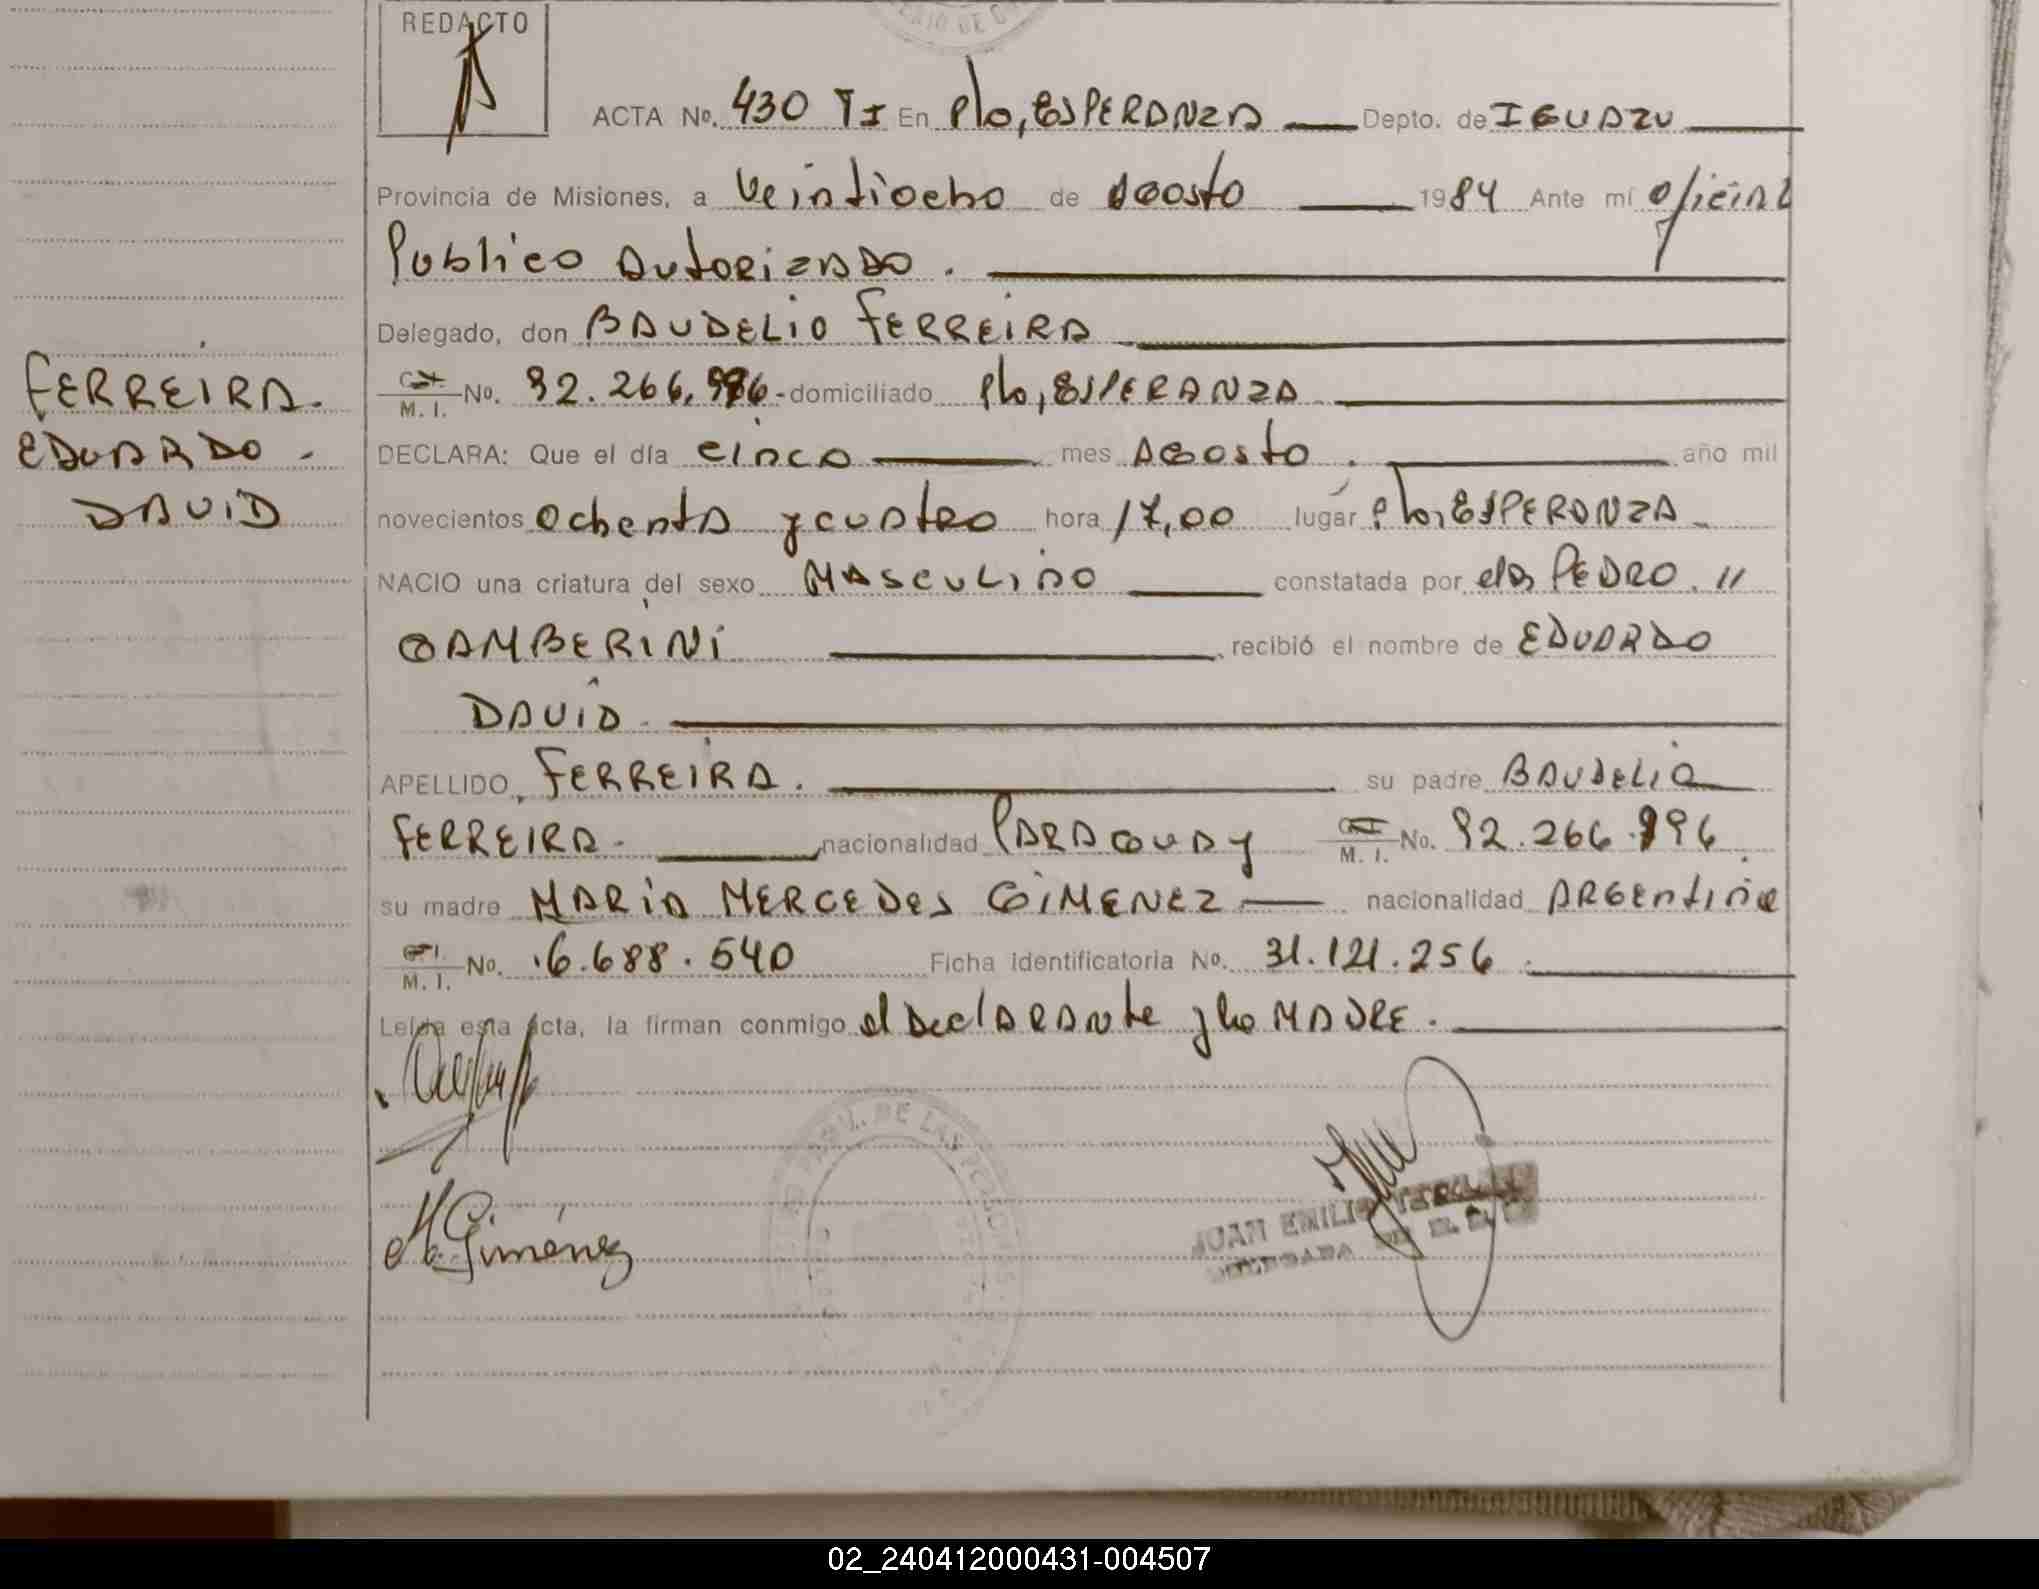 REDACTO
ACTA No. 430 TI En Pto, ESPERANZA Depto. de IGUAZU
Provincia de Misiones, a Veintiocho de Agosto 1984 Ante mí oficial
Publico Autorizado.
Delegado, don BAUDELIO FERREIRA
FERREIRA.
EDUARDO.
DAVID
C.I. M. I. No. 92.266.996- domiciliado Pto, ESPERANZA
DECLARA: Que el día cinco mes Agosto. año mil
novecientos ochenta y cuatro hora 17,00 lugar Pto, ESPERANZA
NACIO una criatura del sexo MASCULINO constatada por el Dr PEDRO. "
GAMBERINI recibió el nombre de EDUARDO
DAVID.
APELLIDO, FERREIRA. su padre BAUDELIO
FERREIRA. nacionalidad PARAGUAY C.I. M. I. No. 92.266.996.
su madre MARIA MERCEDES GIMENEZ nacionalidad ARGENTINA
C.I. M. I. No. 16.688.540 Ficha identificatoria No. 31.121.256.
Leída esta acta, la firman conmigo el Declarante y la MADRE.
M. Giménez
DE LAS
JUAN EMILIO
02_240412000431-004507